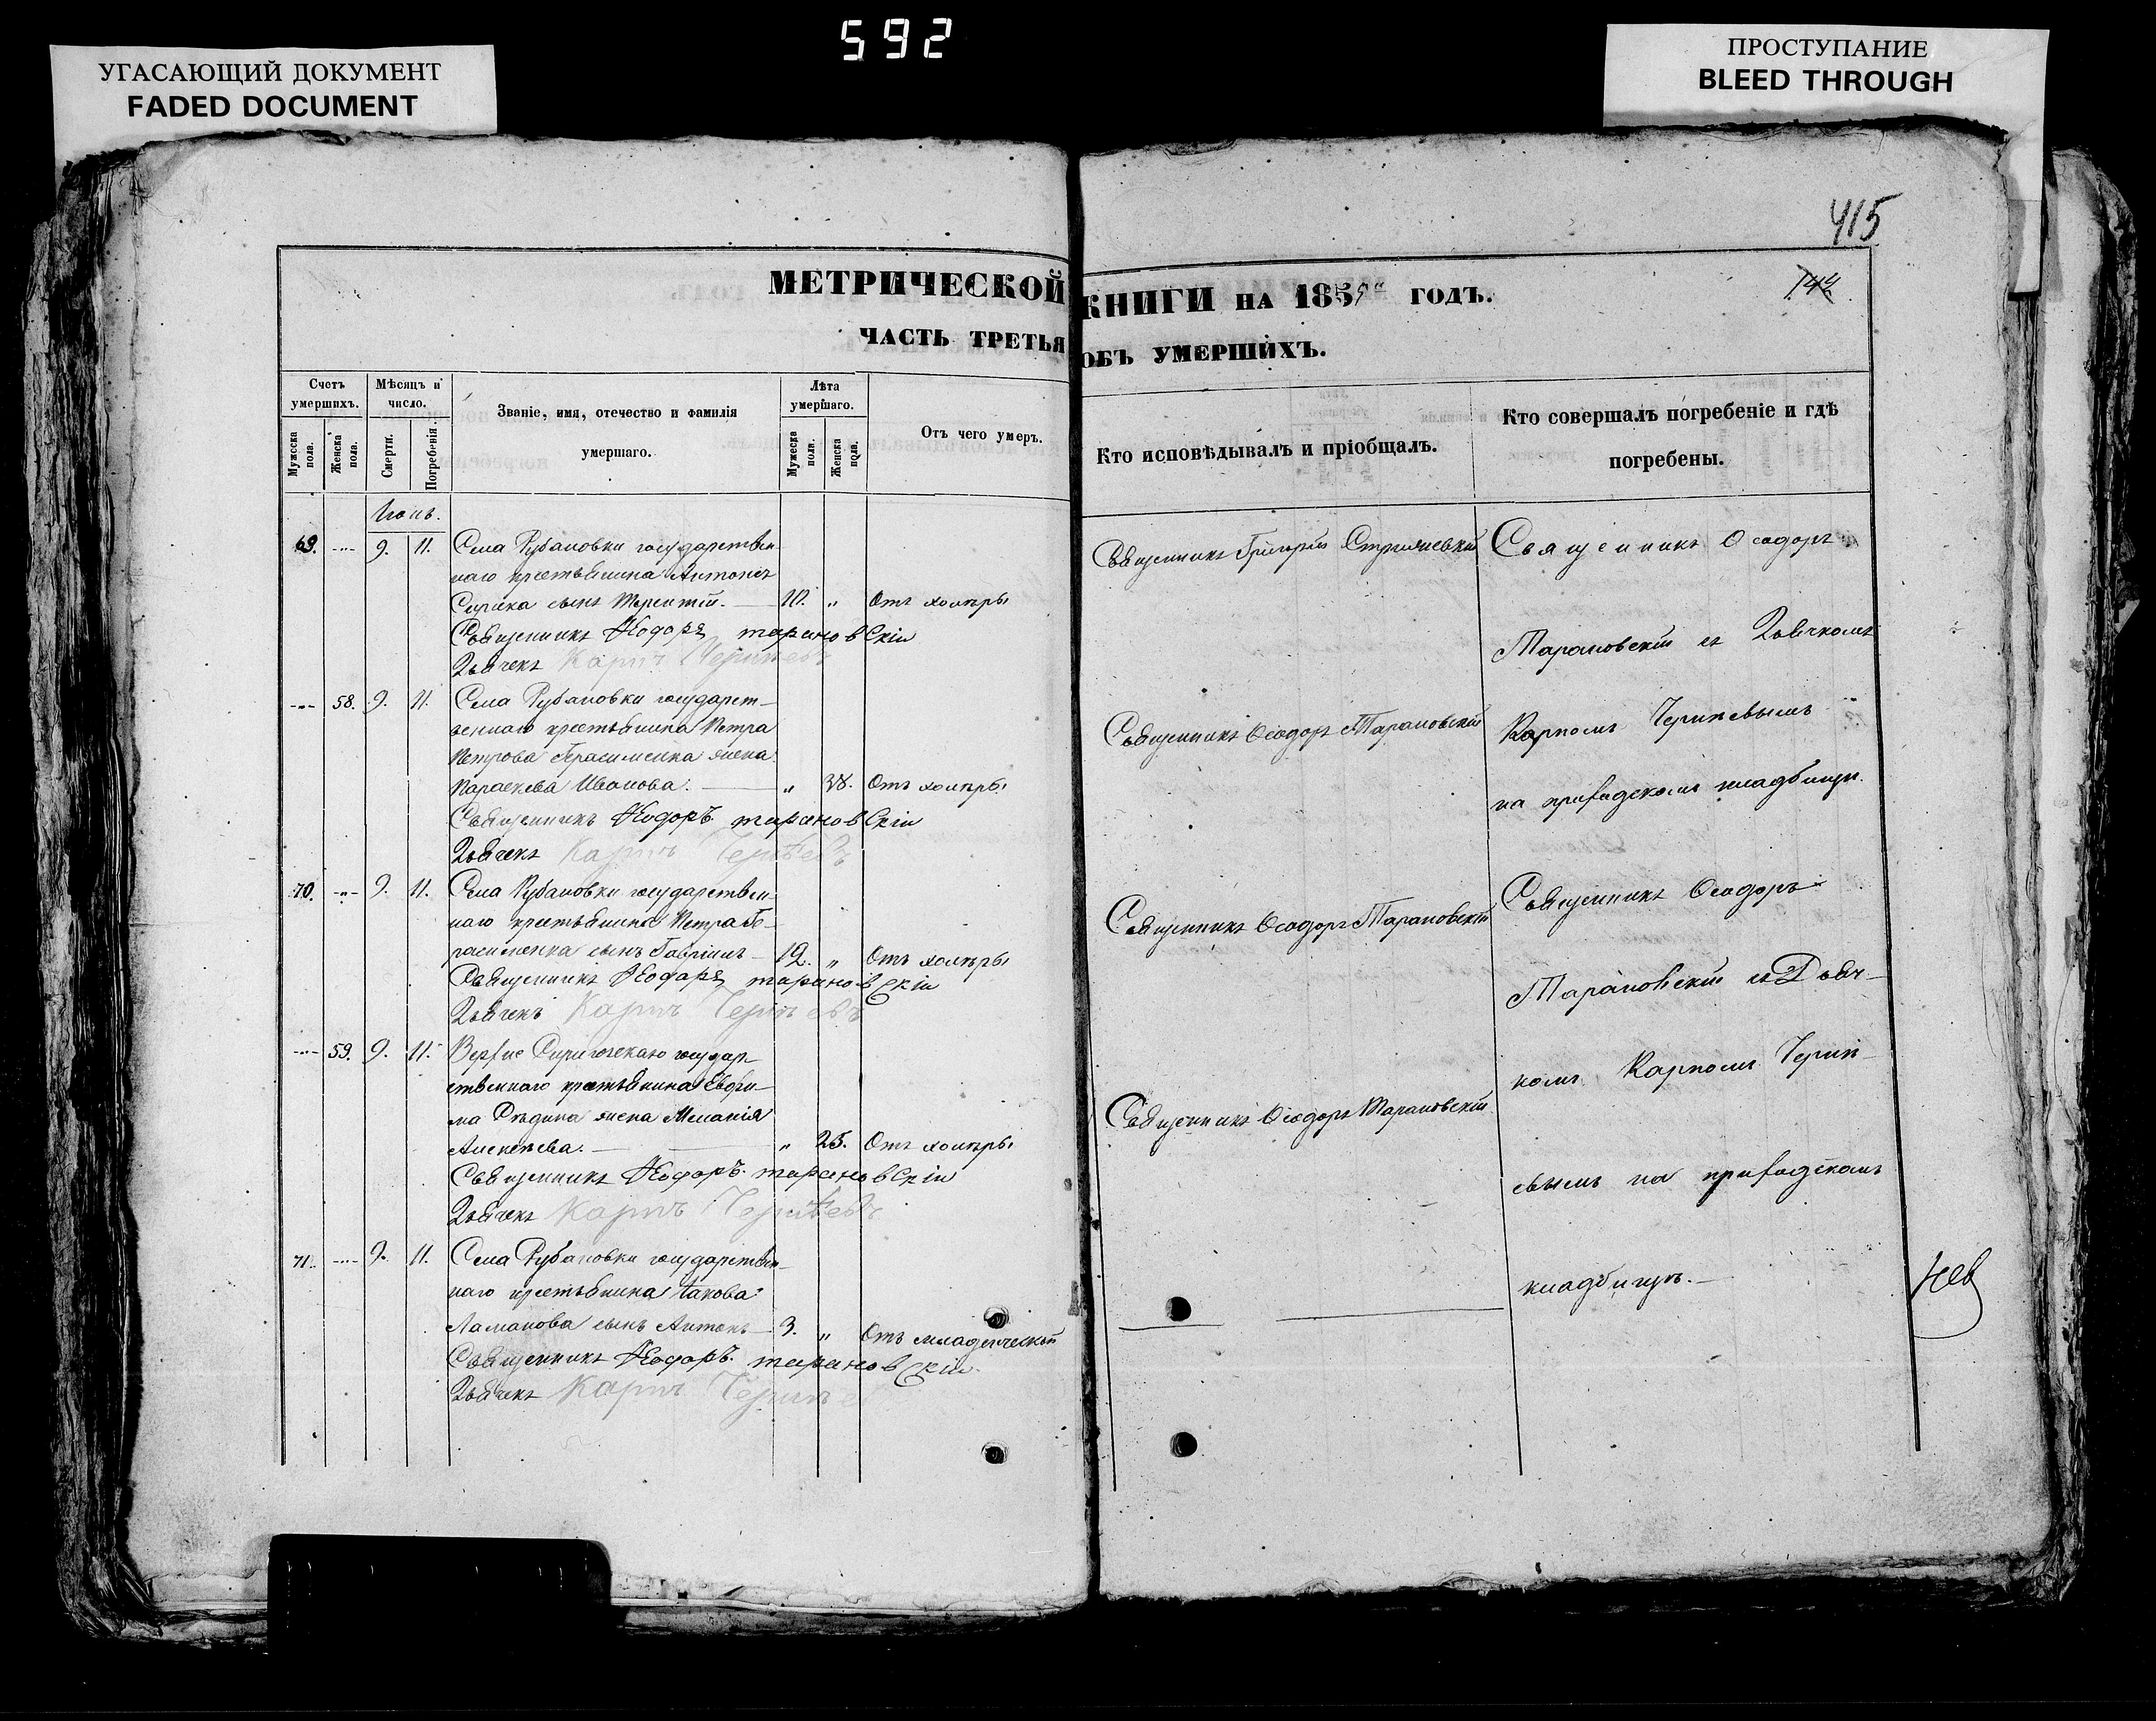 592
УГАСАЮЩИЙ ДОКУМЕНТ
FADED DOCUMENT
ПРОСТУПАНИЕ
BLEED THROUGH
415
144
МЕТРИЧЕСКОЙ КНИГИ НА 1855го ГОДЪ.
ЧАСТЬ ТРЕТЬЯ ОБЪ УМЕРШИХЪ.
Счетъ умершихъ.
Мужеска пола.
Женска пола.
Мѣсяцъ и число.
Смерти.
Погребенія.
Званіе, имя, отечество и фамилія умершаго.
Лѣта умершаго.
Мужеска пола.
Женска пола.
Отъ чего умеръ.
Кто исповѣдывалъ и пріобщалъ.
Кто совершалъ погребеніе и гдѣ погребены.
Іюнь.
69. -"- 9. 11. Села Рубановки государствен-
наго крестьянина Антона
сынъ Терентій. 10. " Отъ холеры
Священникъ Ѳеодоръ Тарановскій
Дьячекъ Карпъ Черняевъ
-"- 58. 9. 11. Села Рубановки государст-
веннаго крестьянина Петра
Петрова Герасименка жена
Параскева Иванова. " 38. Отъ холеры
Священникъ Ѳеодоръ Тарановскій
Дьячекъ Карпъ
70. -"- 9. 11. Села Рубановки государствен-
наго крестьянина Петра Ге-
расименка сынъ Гавріилъ 12. " Отъ холеры
Священникъ Ѳеодоръ Тарановскій
Дьячекъ Карпъ
-"- 59. 9. 11. государ-
ственнаго крестьянина Евфи-
ма жена Меланія
Алексѣева. " 25. Отъ холеры
Священникъ Ѳеодоръ Тарановскій
Дьячекъ Карпъ
71. -"- 9. 11. Села Рубановки государствен-
наго крестьянина Іакова
Ламанова сынъ Антонъ 3. " Отъ младенческой
Священникъ Ѳеодоръ Тарановскій
Дьячекъ Карпъ
Священникъ Григорій
Священникъ Ѳеодоръ Тарановскій
Священникъ Ѳеодоръ Тарановскій
Священникъ Ѳеодоръ Тарановскій
Священникъ Ѳеодоръ
Тарановскій съ Дьячкомъ
Карпомъ
на приходскомъ кладбищѣ.
Священникъ Ѳеодоръ
Тарановскій съ Дьяч-
комъ Карпомъ
евымъ на приходскомъ
кладбищѣ.